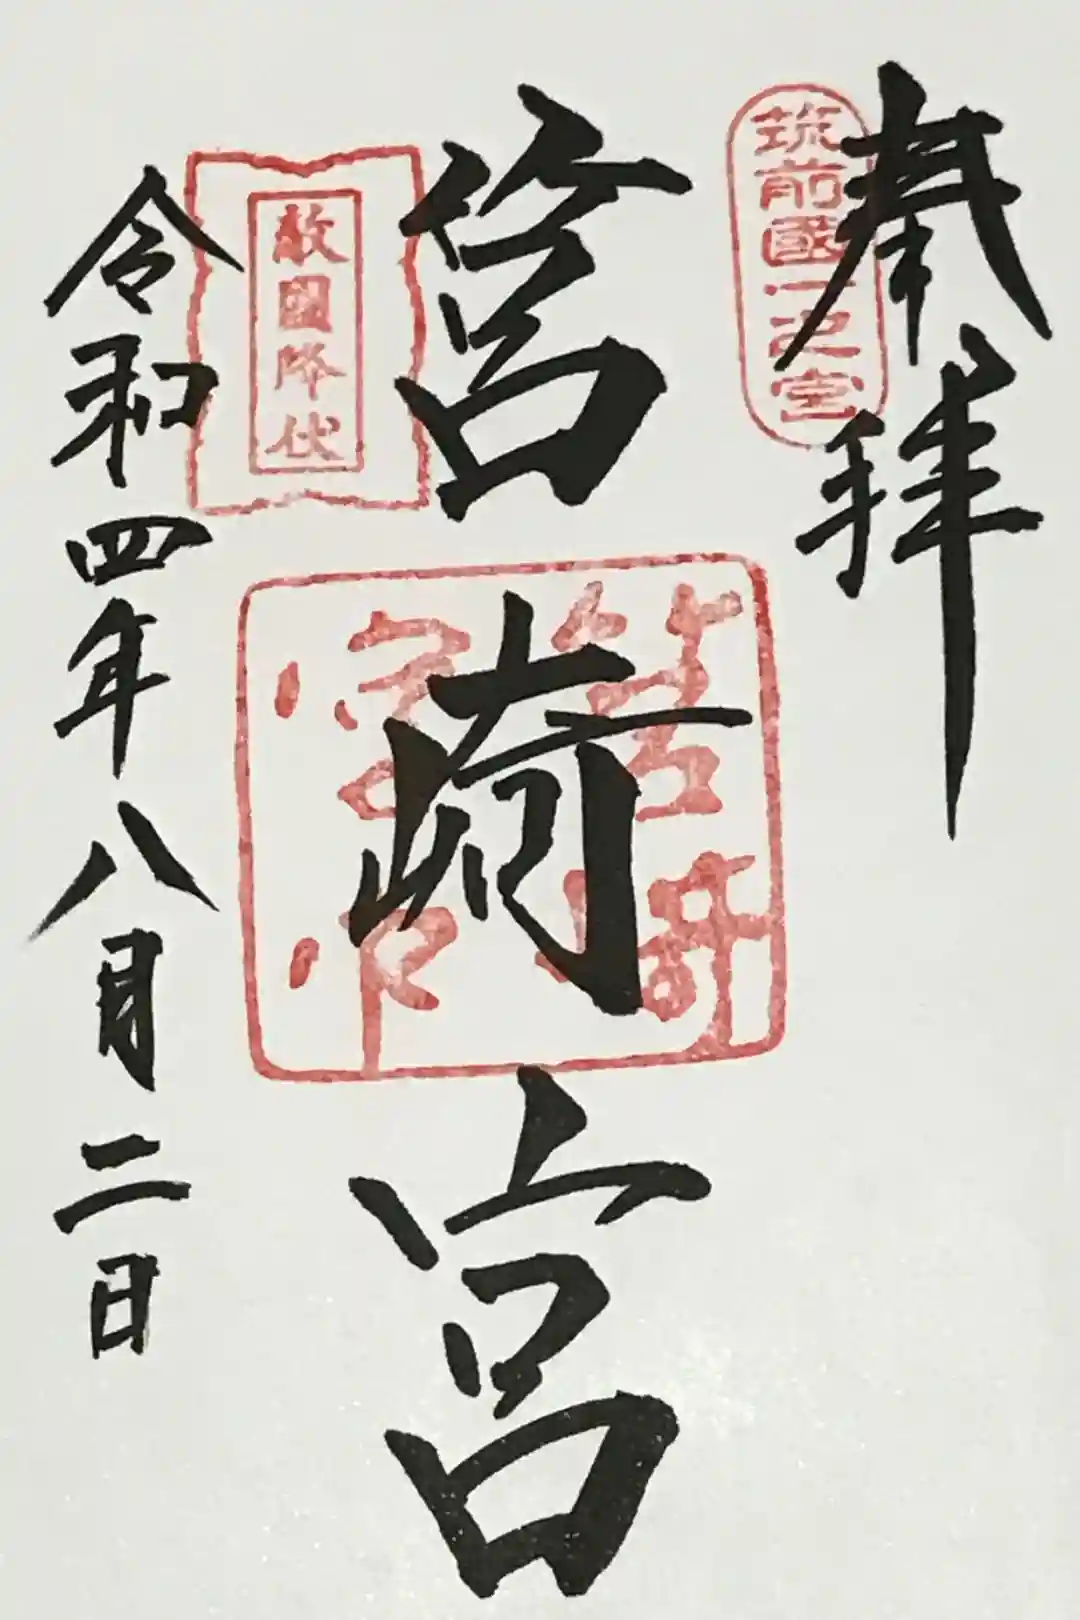 奉拝
筑前國一之宮
筥崎宮
筥崎宮
敵國降伏
令和四年八月二日